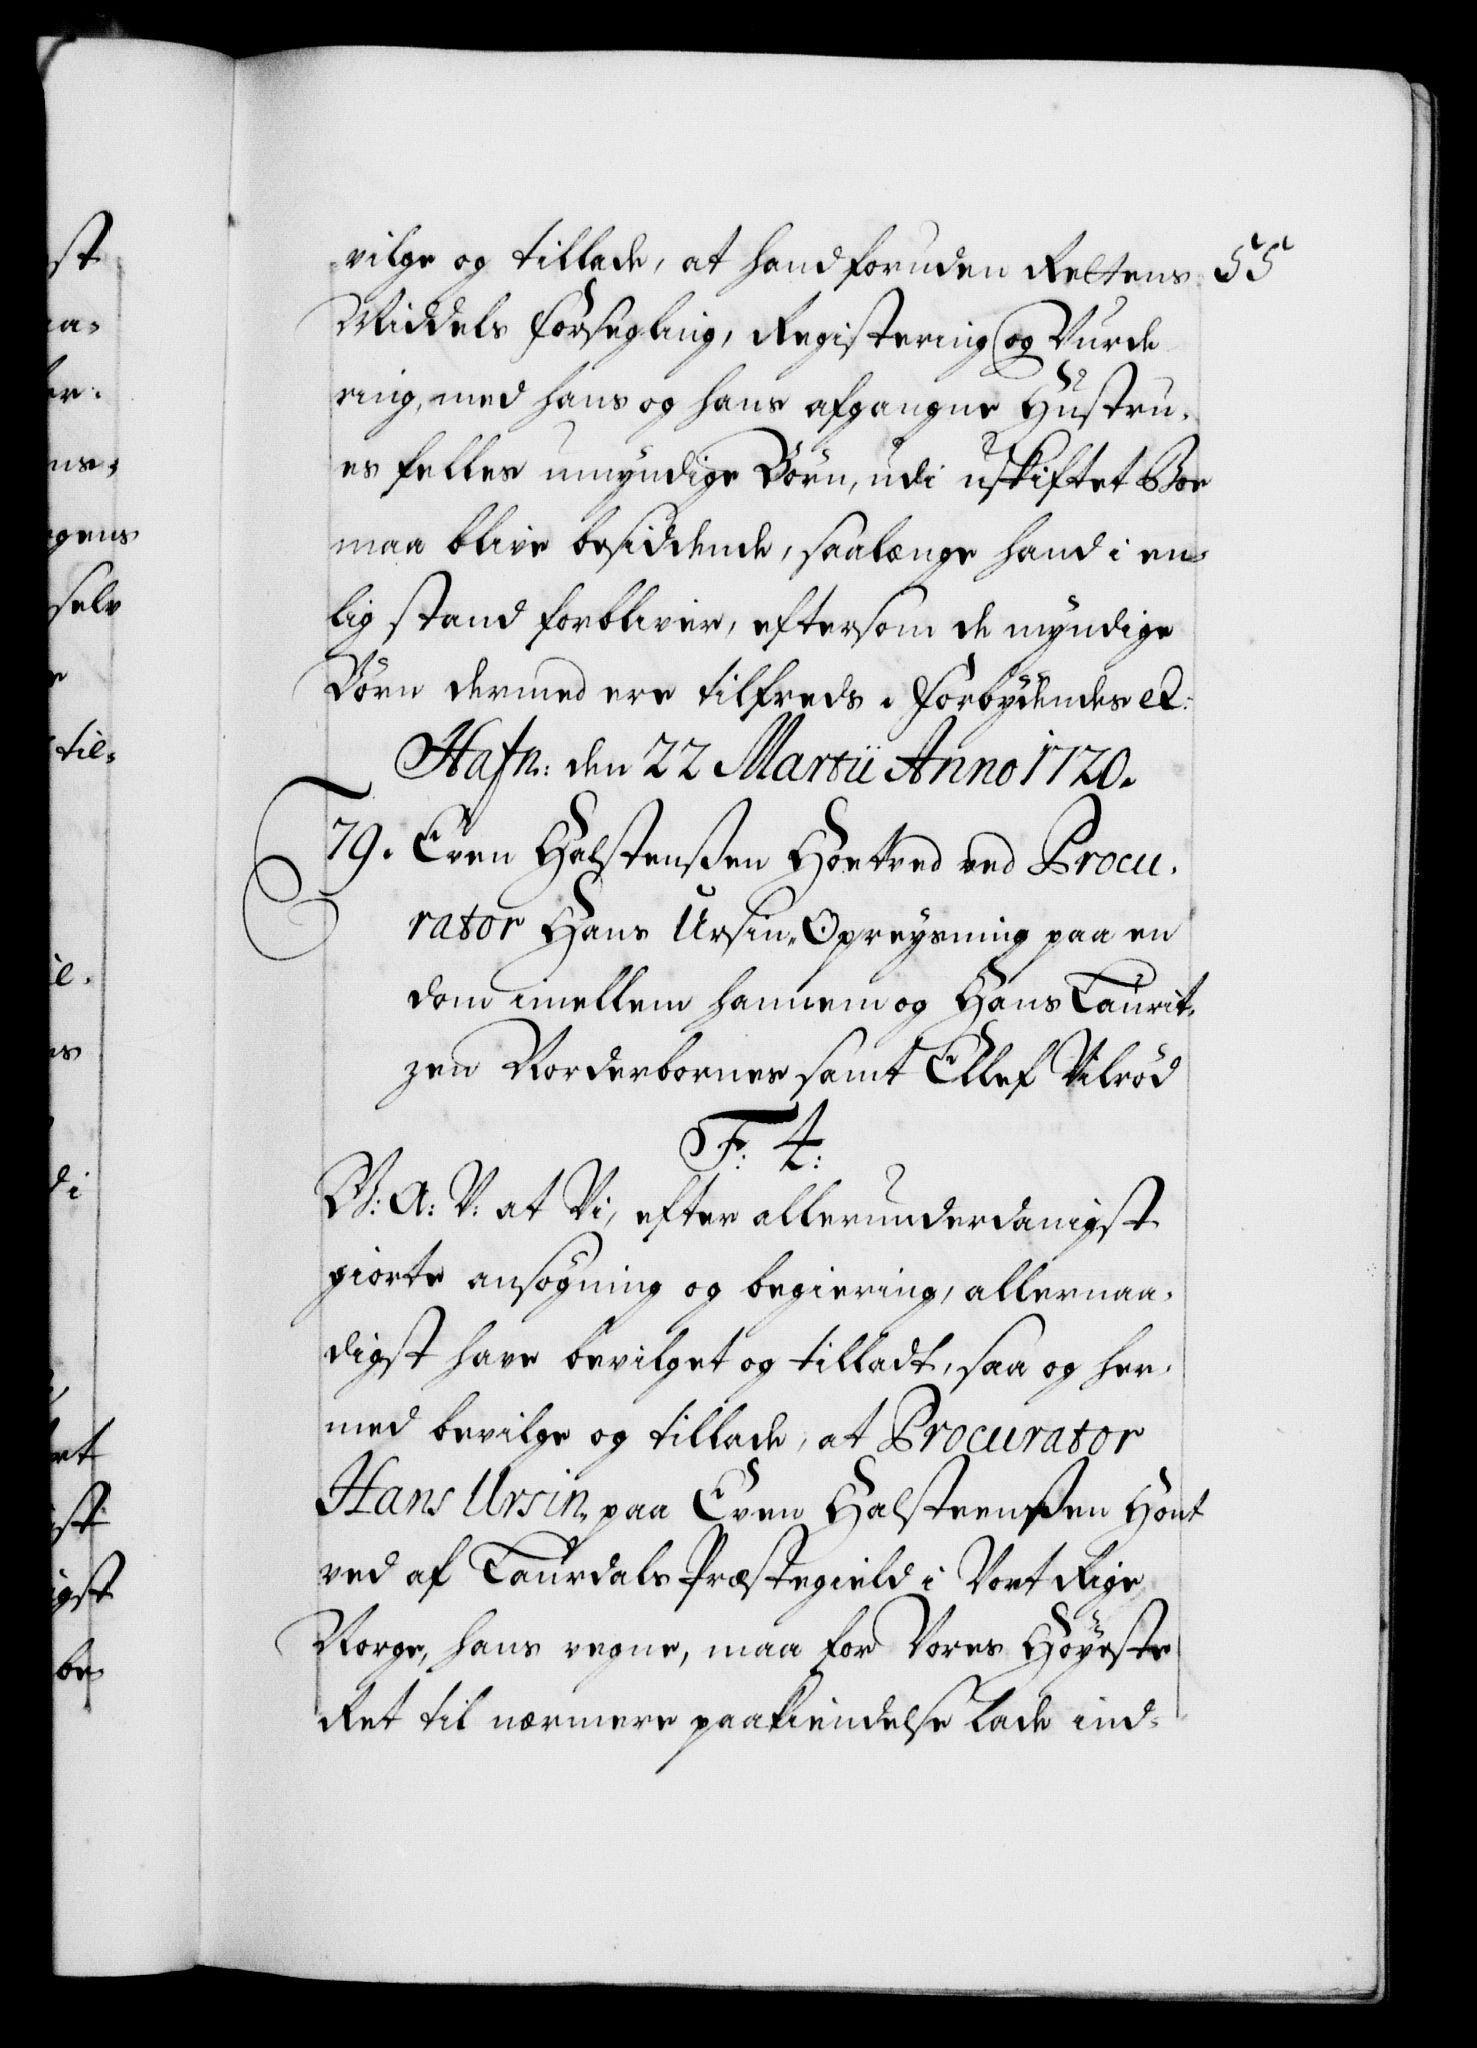 vilge og tillade, at hand foruden Rettens 55
Middels forsegling, Registering og Vurde
ring, med hans og hans afgangne Hustru-
es felles umyndige Börn, udi uskiftet Boe
maa blive besiddende, saalænge hand i en-
lig stand forbliver, eftersom de myndige
Börn dermed ere tilfreds. Forbydendes etc:
Hafn: den 22 Martii Anno 1720.
79. Even Halstenssen Hoetved ved Procu-
rator Hans Ursin. Opreysning paa en
dom imellem hannem og Hans Laurit-
zen Norderbornes samt Ellef Vilröd
F: 4:
G: A: V: at Vi, efter allerunderdanigst
giorte ansögning og begiering, allernaa-
digst have bevilget og tilladt, saa og her-
med bevilge og tillade, at Procurator
Hans Ursin, paa Even Halsteenssen Hoet
ved af Laurdals Præstegield i Vort Rige
Norge, hans vegne, maa for Vores Höyeste
Ret til nærmere paakiendelse lade ind-
st
aa-
er-
ns-
gens
selv
e
til-
il-
es
di
et
st
igst
be